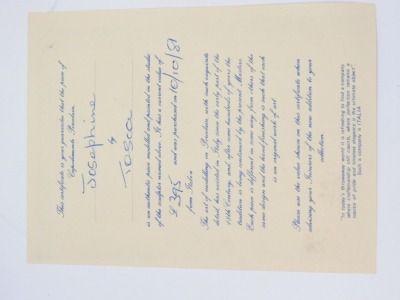 This certificate is your guarantee that the piece of
Capodimonte Porcelain
Josephine
by
Tosca
is an authentic piece modelled and painted in the studio
of the sculptor named above. It has a current value of
£ 395 and was purchased on 10/10/81
from Italia
The art of modelling in Porcelain with such exquisite
detail, has existed in Italy since the early part of the
18th Century, and after some hundreds of years the
tradition is being continued by the present Masters.
Each piece is different in some way from others of the
same design and the hand finishing is such that each
is an original work of art.
Please use the value shown on this certificate when
advising your Insurers of the new addition to your
collection.
"In today's throwaway world it is refreshing to find a company
where craftsmanship still counts, where perfection remains a
matter of pride and timeless elegance is the ultimate object"
Such a company is ITALIA